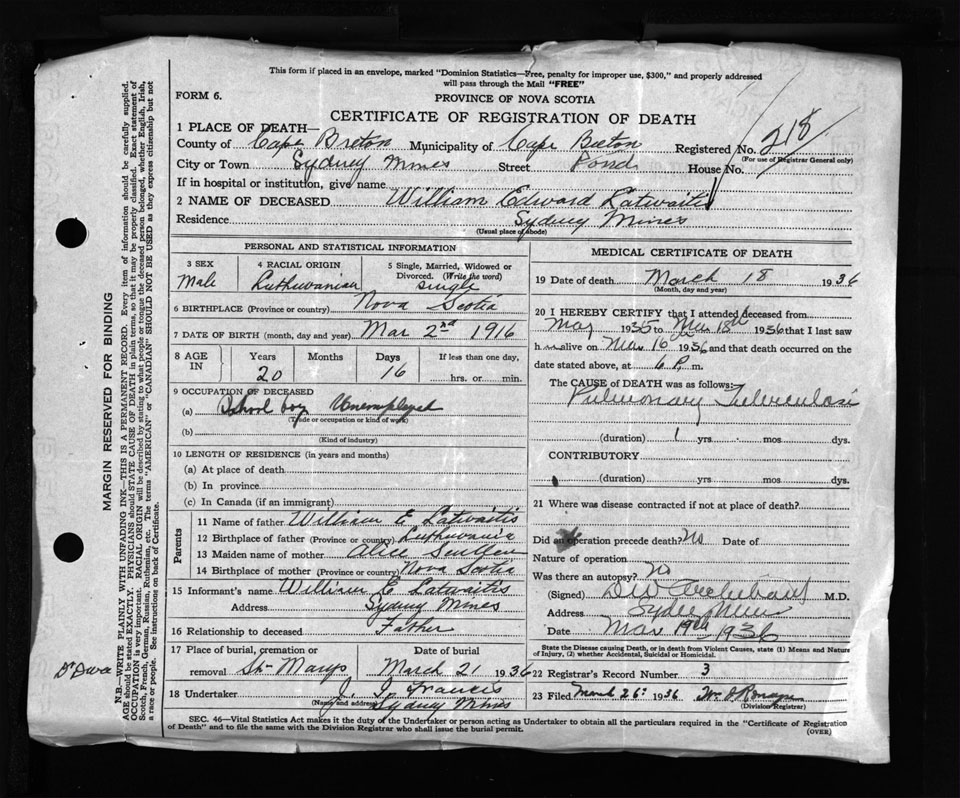 This form if placed in an envelope, marked "Dominion Statistics—Free, penalty for improper use, $300," and properly addressed
will pass through the Mail "FREE"
FORM 6.
PROVINCE OF NOVA SCOTIA
CERTIFICATE OF REGISTRATION OF DEATH
1 PLACE OF DEATH—
County of Cape Breton Municipality of Cape Breton Registered No. 218
(For use of Registrar General only)
City or Town Sydney Mines Street Pond House No.
If in hospital or institution, give name
2 NAME OF DECEASED William Edward Latwaitis
Residence Sydney Mines
(Usual place of abode)
PERSONAL AND STATISTICAL INFORMATION
3 SEX
Male
4 RACIAL ORIGIN
Luthuvanian
5 Single, Married, Widowed or
Divorced. (Write the word)
single
6 BIRTHPLACE (Province or country) Nova Scotia
7 DATE OF BIRTH (month, day and year) Mar 2nd 1916
8 AGE IN
Years Months Days If less than one day,
20 16 hrs. or min.
9 OCCUPATION OF DECEASED
(a) School boy Unemployed
(Trade or occupation or kind of work)
(b)
(Kind of industry)
10 LENGTH OF RESIDENCE (in years and months)
(a) At place of death
(b) In province
(c) In Canada (if an immigrant)
Parents
11 Name of father William E. Latwaitis
12 Birthplace of father (Province or country) Luthuvania
13 Maiden name of mother Alice
14 Birthplace of mother (Province or country) Nova Scotia
15 Informant's name William E Latwaitis
Address Sydney Mines
16 Relationship to deceased Father
17 Place of burial, cremation or Date of burial
removal St Marys March 21 1936
18 Undertaker J. J. Francis
(Name and address) Sydney Mines
MEDICAL CERTIFICATE OF DEATH
19 Date of death March 18 1936
(Month, day and year)
20 I HEREBY CERTIFY that I attended deceased from
May 1935 to Mar 18th 1936 that I last saw
h im alive on Mar 16 1936 and that death occurred on the
date stated above, at 6 P. m.
The CAUSE of DEATH was as follows:
Pulmonary Tuberculosis
(duration) 1 yrs. mos dys.
CONTRIBUTORY
(duration) yrs mos dys.
21 Where was disease contracted if not at place of death?
Did an operation precede death? No Date of
Nature of operation
Was there an autopsy? no
(Signed) M.D.
Address Sydney Mines
Date Mar 19th 1936
State the Disease causing Death, or in death from Violent Causes, state (1) Means and Nature
of Injury, (2) whether Accidental, Suicidal or Homicidal.
22 Registrar's Record Number 3
23 Filed March 26 1936
(Division Registrar)
SEC. 46—Vital Statistics Act makes it the duty of the Undertaker or person acting as Undertaker to obtain all the particulars required in the "Certificate of Registration
of Death" and to file the same with the Division Registrar who shall issue the burial permit.
(OVER)
MARGIN RESERVED FOR BINDING
N.B.—WRITE PLAINLY WITH UNFADING INK—THIS IS A PERMANENT RECORD. Every item of information should be carefully supplied.
AGE should be stated EXACTLY. PHYSICIANS should STATE CAUSE OF DEATH in plain terms, so that it may be properly classified. Exact statement of
OCCUPATION is very important. RACIAL ORIGIN will be described by stating to what people or tongue the deceased person belonged, whether English, Irish,
Scotch, French, German, Russian, Ruthenian, etc. The terms "AMERICAN" or "CANADIAN" SHOULD NOT BE USED as they express citizenship but not
a race or people. See instructions on back of Certificate.